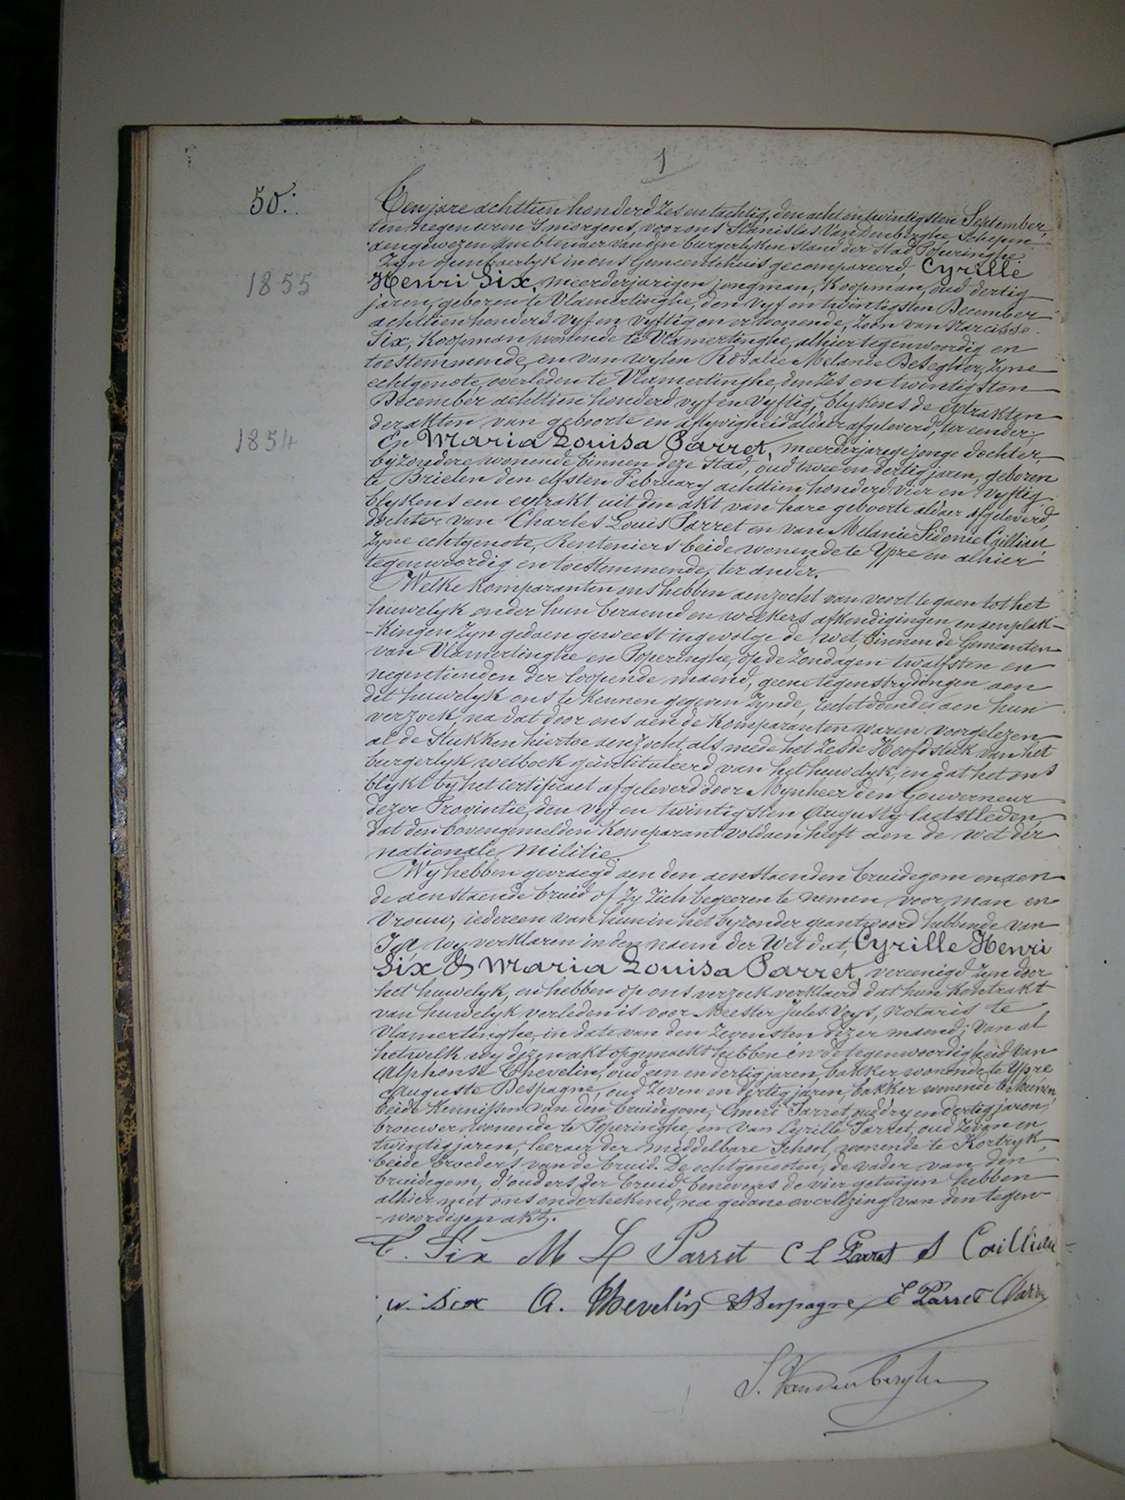 1
50.
Ten jare achttien honderd zes en tachtig, den acht en twintigsten September
ten negen uren 's morgens, voor ons Stanislas Vandenberghe Schepen
aengewezen ambtenaer van den burgerlyken stand der Stad Poperinghe
Zyn openbaerlyk in ons Gemeentehuis gecompareerd, Cyrille
1855
Henri Six, meerderjarigen jongman, Koopman, oud dertig
jaren, geboren te Vlamertinghe, den vyf en twintigsten December
achttien honderd vyf en vyftig en er wonende, Zoon van Narcisse
Six, Koopman, wonende te Vlamertinghe, alhier tegenwoordig en
toestemmende, en van wylen Rosalie Melanie Deseghter, Zyne
echtgenote, overleden te Vlamertinghe, den zes en twintigsten
December achttien honderd vyf en vyftig, blykens de extrakten
der akten van geboorte en aflyvigheid aldaer afgeleverd, ter eender;
1854
En Maria Louisa Parret, meerderjarige jonge dochter,
byzondere, wonende binnen deze Stad, oud twee en dertig jaren, geboren
te Brielen den elfsten February achttien honderd vier en vyftig
blykens een extrakt uit den akt van hare geboorte aldaer afgeleverd,
dochter van Charles Louis Parret en van Melanie Sidonie Cailliau
Zyne echtgenote, Renteniers beide wonende te Ypre en alhier
tegenwoordig en toestemmende, ter ander.
Welke Komparanten ons hebben aenzocht van voort te gaen tot het
huwelyk onder hun beraemd en welkers afkondigingen en aenplak-
-kingen Zyn gedaen geweest ingevolge de wet, binnen de Gemeenten
van Vlamertinghe en Poperinghe, op de Zondagen twalfsten en
negentienden der loopende maend, geene tegenstrydingen aen
dit huwelyk ons te kennen gegeven Zynde, rechtdoende aen hun
verzoek, na dat door ons aen de Komparanten waren voorgelezen
al de Stukken hiertoe aenzocht, als mede het zesde Hoofdstuk van het
burgerlyk wetboek geïnstituleerd van het huwelyk, en dat het ons
blykt by het certificaet afgeleverd door Mynheer den Gouverneur
dezer Provintie, den vyf en twintigsten Augusty laetstleden
dat den bovengemelden Komparant voldaen heeft aen de wet der
nationale Militie.
Wy hebben gevraegd aen den aenstaenden bruidegom en aen
de aenstaende bruid of Zy Zich begeeren te nemen voor man en
vrouw, iedereen van hun in het byzonder geantwoord hebbende van
Ja, wy verklaren in den naem der Wet dat, Cyrille Henri
Six & Maria Louisa Parret, vereenigd Zyn door
het huwelyk, en hebben op ons verzoek verklaerd dat hun Kontrakt
van huwelyk verleden is voor Meester Jules Vuys, notaris te
Vlamertinghe, in date van den Zevensten dezer maend; Van al
hetwelk wy dezen akt opgemaekt hebben en de tegenwoordigheid van
Alphonse Thevelin, oud een en dertig jaren, bakker wonende te Ypre
Auguste Despagne, oud Zeven en dertig jaren, bakker wonende te
beide Kennissen van den bruidegom, Omeri Parret, oud dry en dertig jaren,
brouwer, wonende te Poperinghe, en van Cyrille Parret, oud Zeven en
twintig jaren, leeraer der middelbare School, wonende te Kortryk,
beide broeders van de bruid. De echtgenooten, de vader van den
bruidegom, d'ouders der bruid, benevens de vier getuigen hebben
alhier met ons onderteekend, na gedane overlezing van den tegen-
-woordigen akt.
C. Six M L Parret C L Parret S Cailliau
N. Six A. Thevelin A Despagne C Parret
S. Vandenberghe